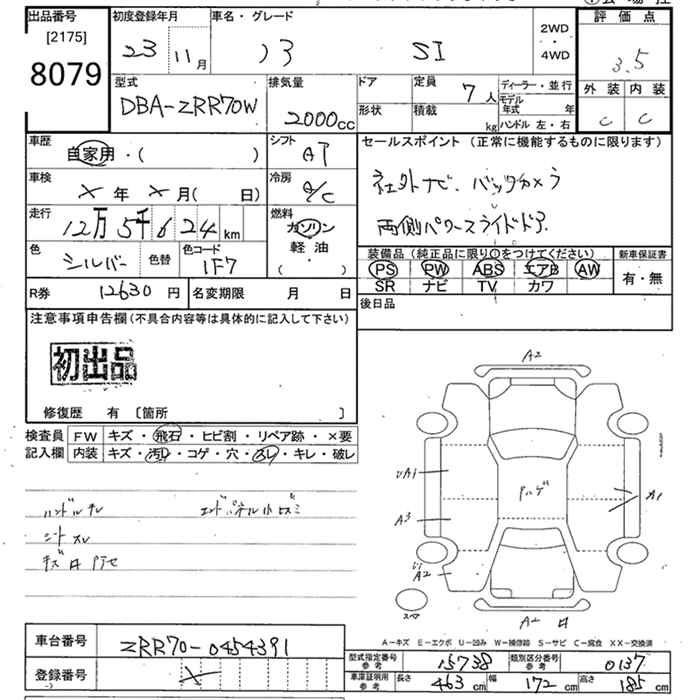 出品番号
[2175]
8079
初度登録年月
23 11月
車名・グレード
SI
2WD
・
4WD
評価点
3.5
外装 内装
C C
型式
DBA-ZRR70W
排気量
2000cc
ドア
形状
定員
7人
積載
kg
ディーラー・並行
モデル年式 年
ハンドル 左・右
車歴
自家用・( )
シフト
AT
車検
X年 X月( 日)
冷房
A/C
走行
12万5千624km
燃料
ガソリン
軽油
( )
色
シルバー
色替
色コード
1F7
R券 12630円
名変期限 月 日
セールスポイント (正常に機能するものに限ります)
社外ナビ. バックカメラ
両側パワースライドドア.
装備品(純正品に限り○をつけてください)
PS PW ABS エアB AW
SR ナビ TV カワ
新車保証書
有・無
後日品
注意事項申告欄(不具合内容等は具体的に記入して下さい)
初出品
修復歴 有 〔箇所 〕
検査員記入欄
FW キズ・飛石・ヒビ割・リペア跡・×要
内装 キズ・汚レ・コゲ・穴・スレ・キレ・破レ
ハンドルスレ
シートスレ
A2
UA1
A3
A2
A1
ハゲ
スペア
A2
A-キズ E-エクボ U-凹み W-補修跡 S-サビ C-腐食 XX-交換済
車台番号 ZRR70-0454391
登録番号
型式指定番号 参考 15738
類別区分番号 参考 0137
車庫証明用 参考
長さ 463cm
幅 172cm
高さ 185cm